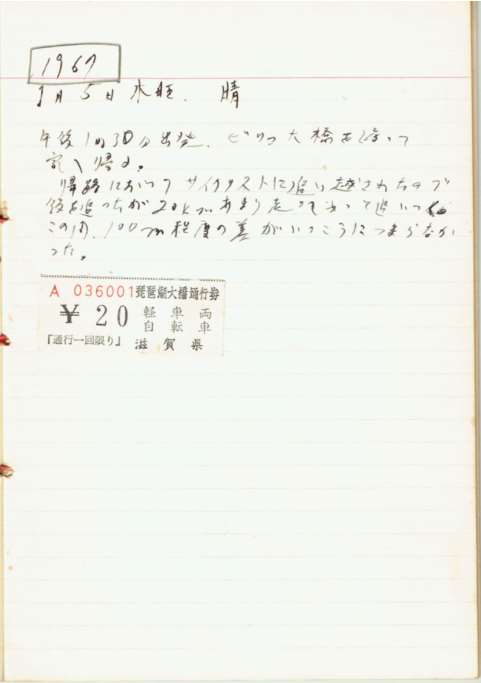 1967
1月5日 木曜. 晴
午後1時30分出発、ビワコ大橋を渡って
帰る。
帰路においてサイクリストに追い越されたので
後を追ったが20kmあまり走って追いつく
この間、100m程度の差がいっこうにつまらなか
った。
A 036001 琵琶湖大橋通行券
¥20 軽車両
自転車
『通行一回限り』 滋賀県